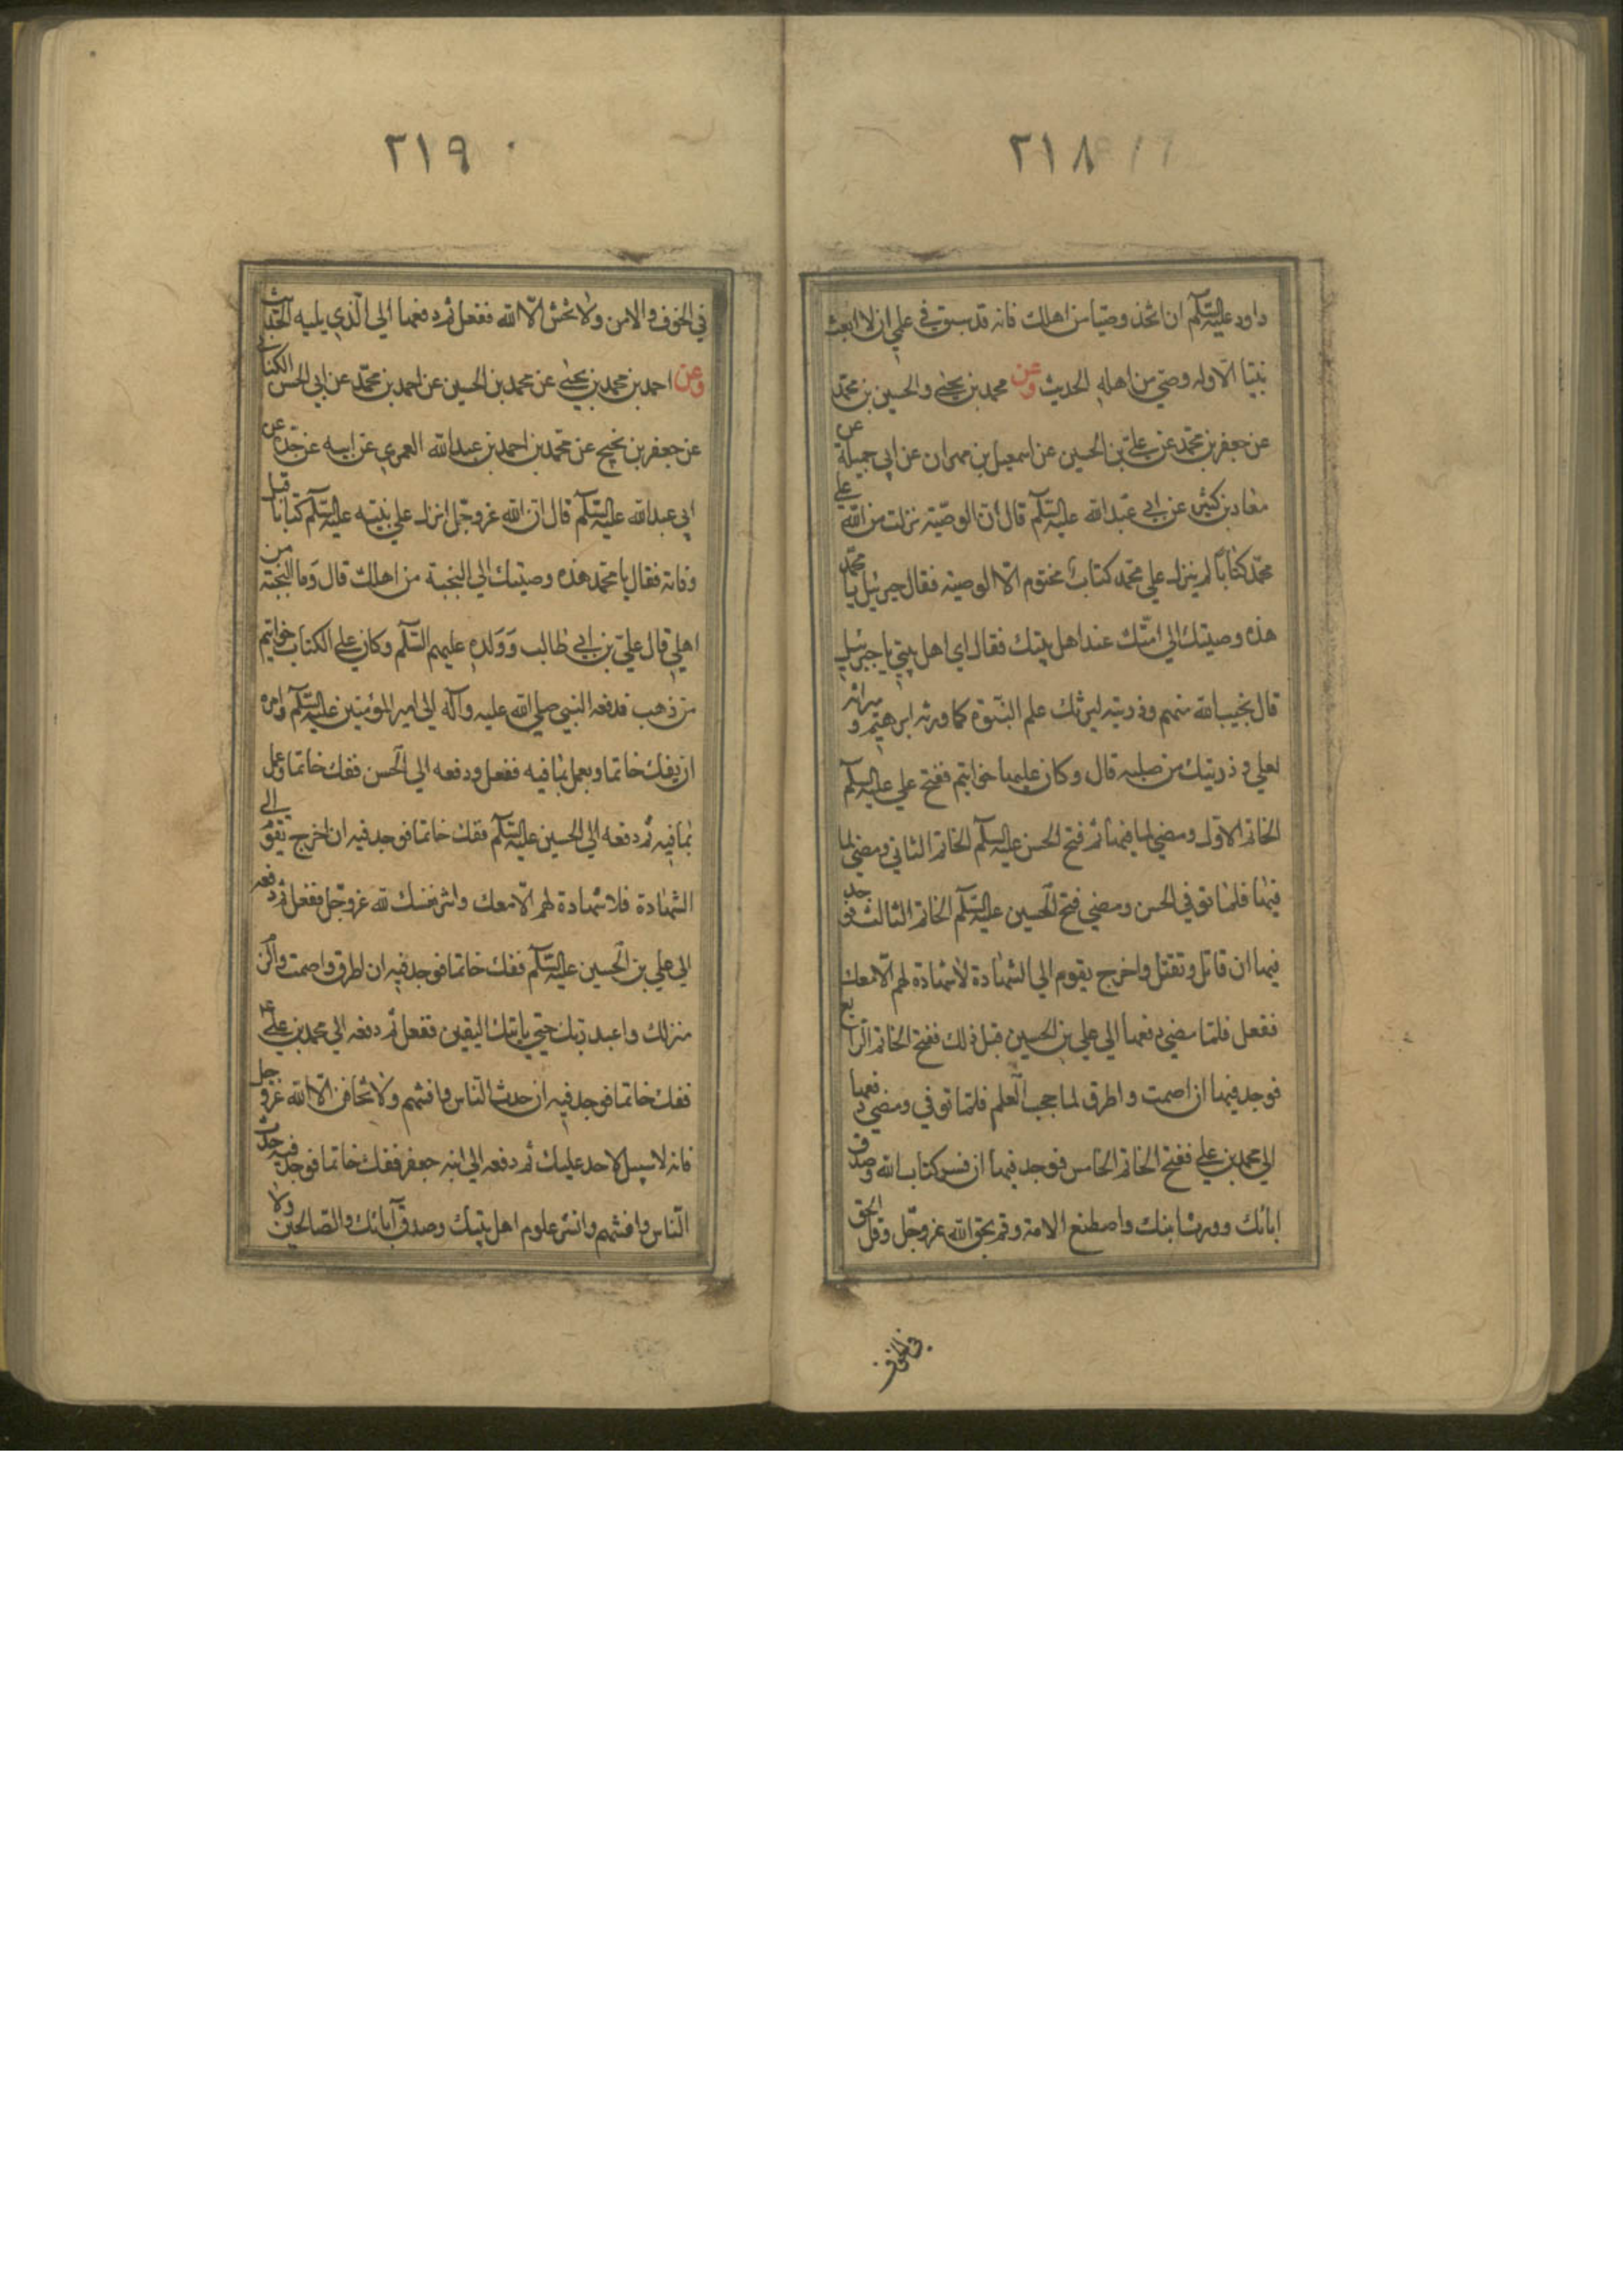 ٢١٨
داود عليه السلم ان اتخذ وصيا من اهلك فانه قد سبق في علمي ان لا ابعث
نبيا الا وله وصي من اهله الحديث وعن محمد بن يحيى والحسين بن محمد
عن جعفر بن محمد عن علي بن الحسين عن اسمعيل بن مهران عن ابي جميلة عن
معاد بن كثير عن ابي عبد الله عليه السلم قال ان الوصية نزلت من الله علي
محمد كتابا لم ينزل علي محمد كتاب مختوم الا الوصية فقال جبرئيل يا محمد
هذه وصيتك الي امتك عند اهل بيتك فقال اي اهل بيتي يا جبرئيل
قال نجيب الله منهم وذريته ليرثك علم النبوة كما ورثه ابرهيم و ميراثه
لعلي و ذريتك من صلبه قال وكان عليها خواتيم ففتح علي عليه السلم
الخاتم الاول ومضي لما فيها ثم فتح الحسن عليه السلم الخاتم الثاني ومضي لما
فيها فلما توفي الحسن ومضي فتح الحسين عليه السلم الخاتم الثالث فوجد
فيها ان قاتل وتقتل واخرج بقوم الي الشهادة لا شهادة لهم الا معك
ففعل فلما مضي دفعها الي علي بن الحسين قبل ذلك ففتح الخاتم الرابع
فوجد فيها ان اصمت و اطرق لما حجب العلم فلما توفي ومضي دفعها
الي محمد بن علي ففتح الخاتم الخامس فوجد فيها ان فسر كتاب الله وصدق
اباتك وورث ابنك واصطنع الامة وقم بحق الله عز وجل وقل الحق
في الخوف
٢١٩
في الخوف والامن ولا تخش الا الله ففعل ثم دفعها الي الذي يليه الحديث
وعن احمد بن محمد بن يحيى عن محمد بن الحسين عن احمد بن محمد عن ابي الحسن الكناني
عن جعفر بن نجيح عن محمد بن احمد بن عبد الله العمري عن ابيه عن جده عن
ابي عبد الله عليه السلم قال ان الله عز وجل انزل علي نبيه عليه السلم كتابا قبل
وفاته فقال يا محمد هذه وصيتك الي النجبة من اهلك قال وما النجبة من
اهلي قال علي بن ابي طالب وولده عليهم السلم وكان علي الكتاب خواتيم
من ذهب فدفعه النبي صلي الله عليه وآله الي امير المؤمنين عليه السلم وامره
ان يفك خاتما ويعمل بما فيه ففعل ودفعه الي الحسن ففك خاتما وعمل
بما فيه ثم دفعه الي الحسين عليه السلم ففك خاتما فوجد فيه ان اخرج بقوم الي
الشهادة فلا شهادة لهم الا معك واشر نفسك لله عز وجل ففعل ثم دفعه
الي علي بن الحسين عليه السلم ففك خاتما فوجد فيه ان اطرق واصمت والزم
منزلك واعبد ربك حتي ياتيك اليقين ففعل ثم دفعه الي محمد بن علي ع
ففك خاتما فوجد فيه ان حدث الناس وافتهم ولا تخافن الا الله عز و جل
فانه لا سبيل لاحد عليك ثم دفعه الي ابنه جعفر ففك خاتما فوجد فيه حدث
الناس وافتهم وانشر علوم اهل بيتك وصدق آبائك والصالحين ولا